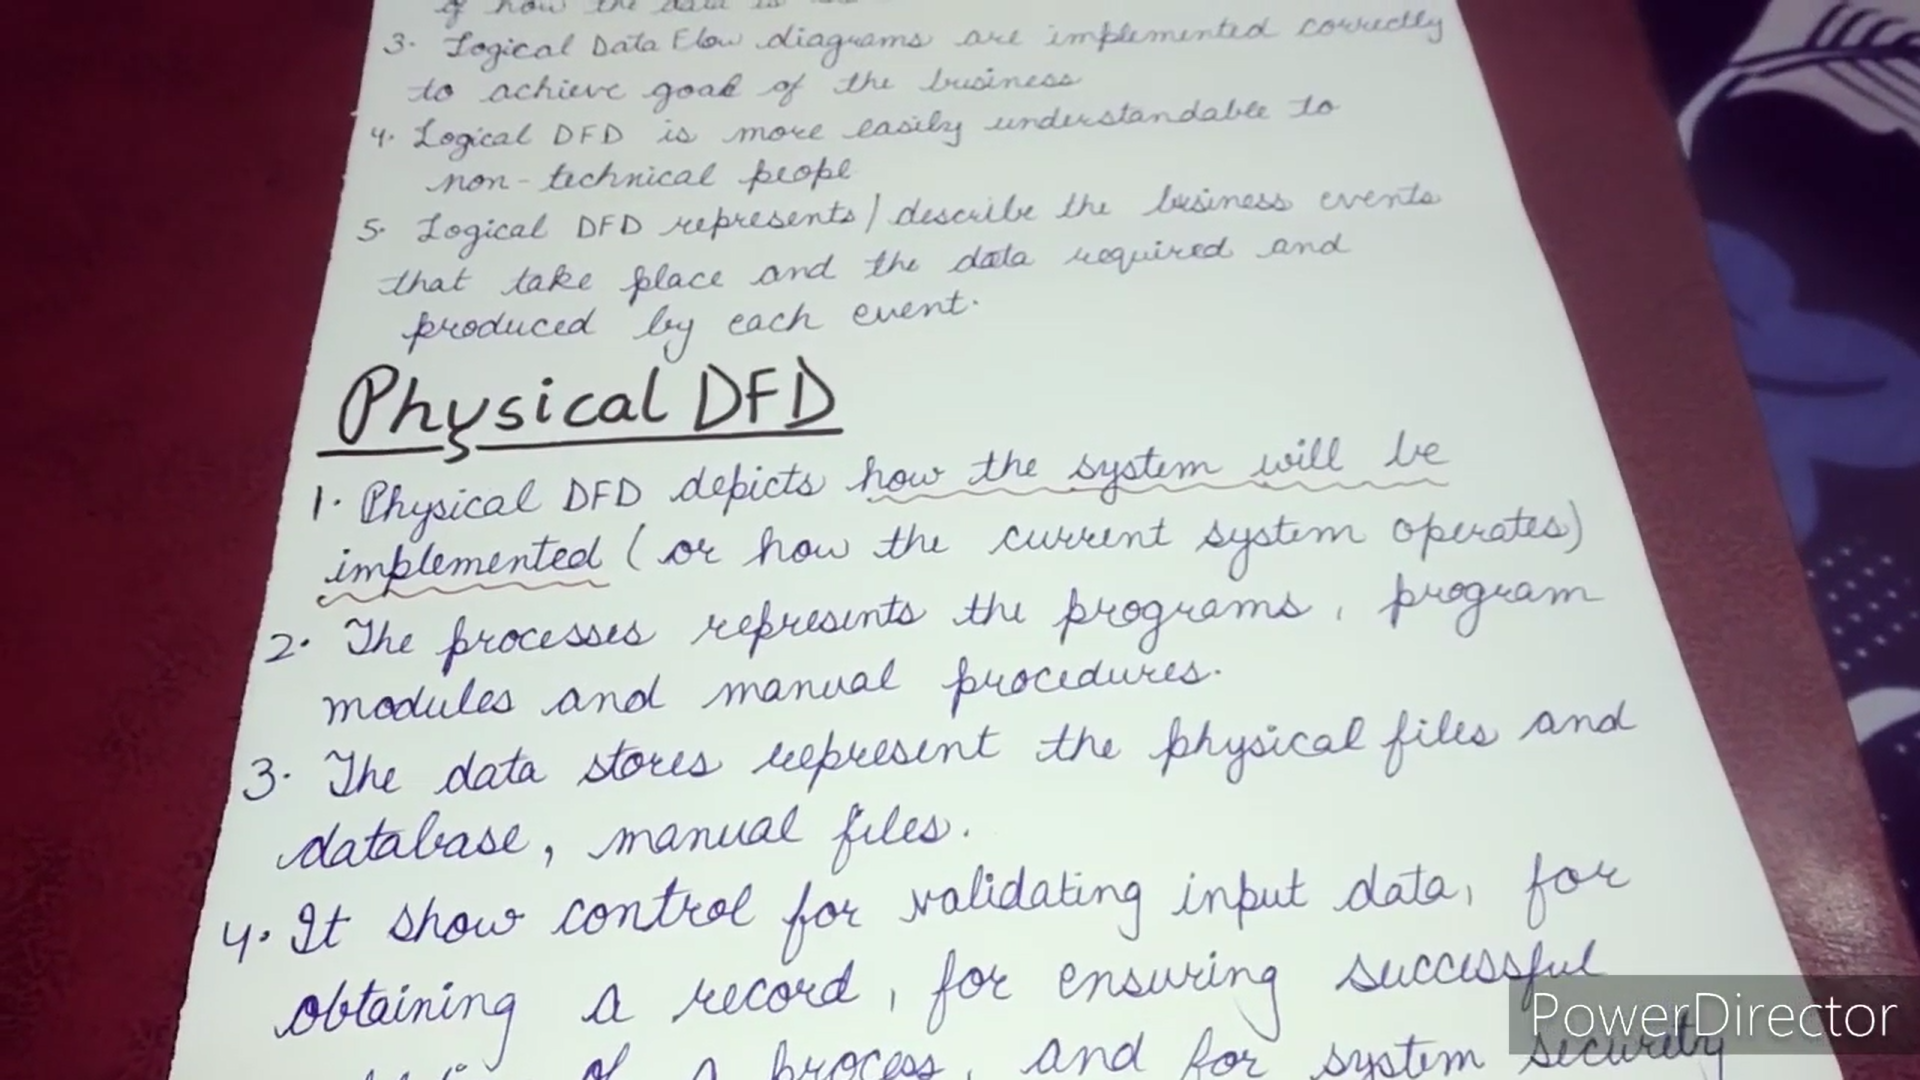 of how the data is
3. Logical Data Flow diagrams are implemented correctly
to achieve goal of the business
4. Logical DFD is more easily understandable to
non-technical peopl
5. Logical DFD represents/describe the business events
that take place and the data required and
produced by each event.
Physical DFD
1. Physical DFD depicts how the system will be
implemented (or how the current system operates)
2. The processes represents the programs, program
modules and manual procedures.
3. The data stores represent the physical files and
database, manual files.
4. It show control for validating input data, for
obtaining a record, for ensuring successful
of a process, and for system security
PowerDirector